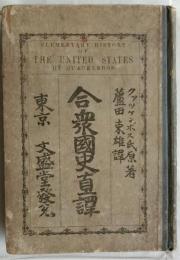 ELEMENTARY HISTORY
OF
THE UNITED STATES
BY QUACKENBOS
クァッケンボス氏原著
蘆田束雄譯
合衆國史直譯
東京 文盛堂發兌